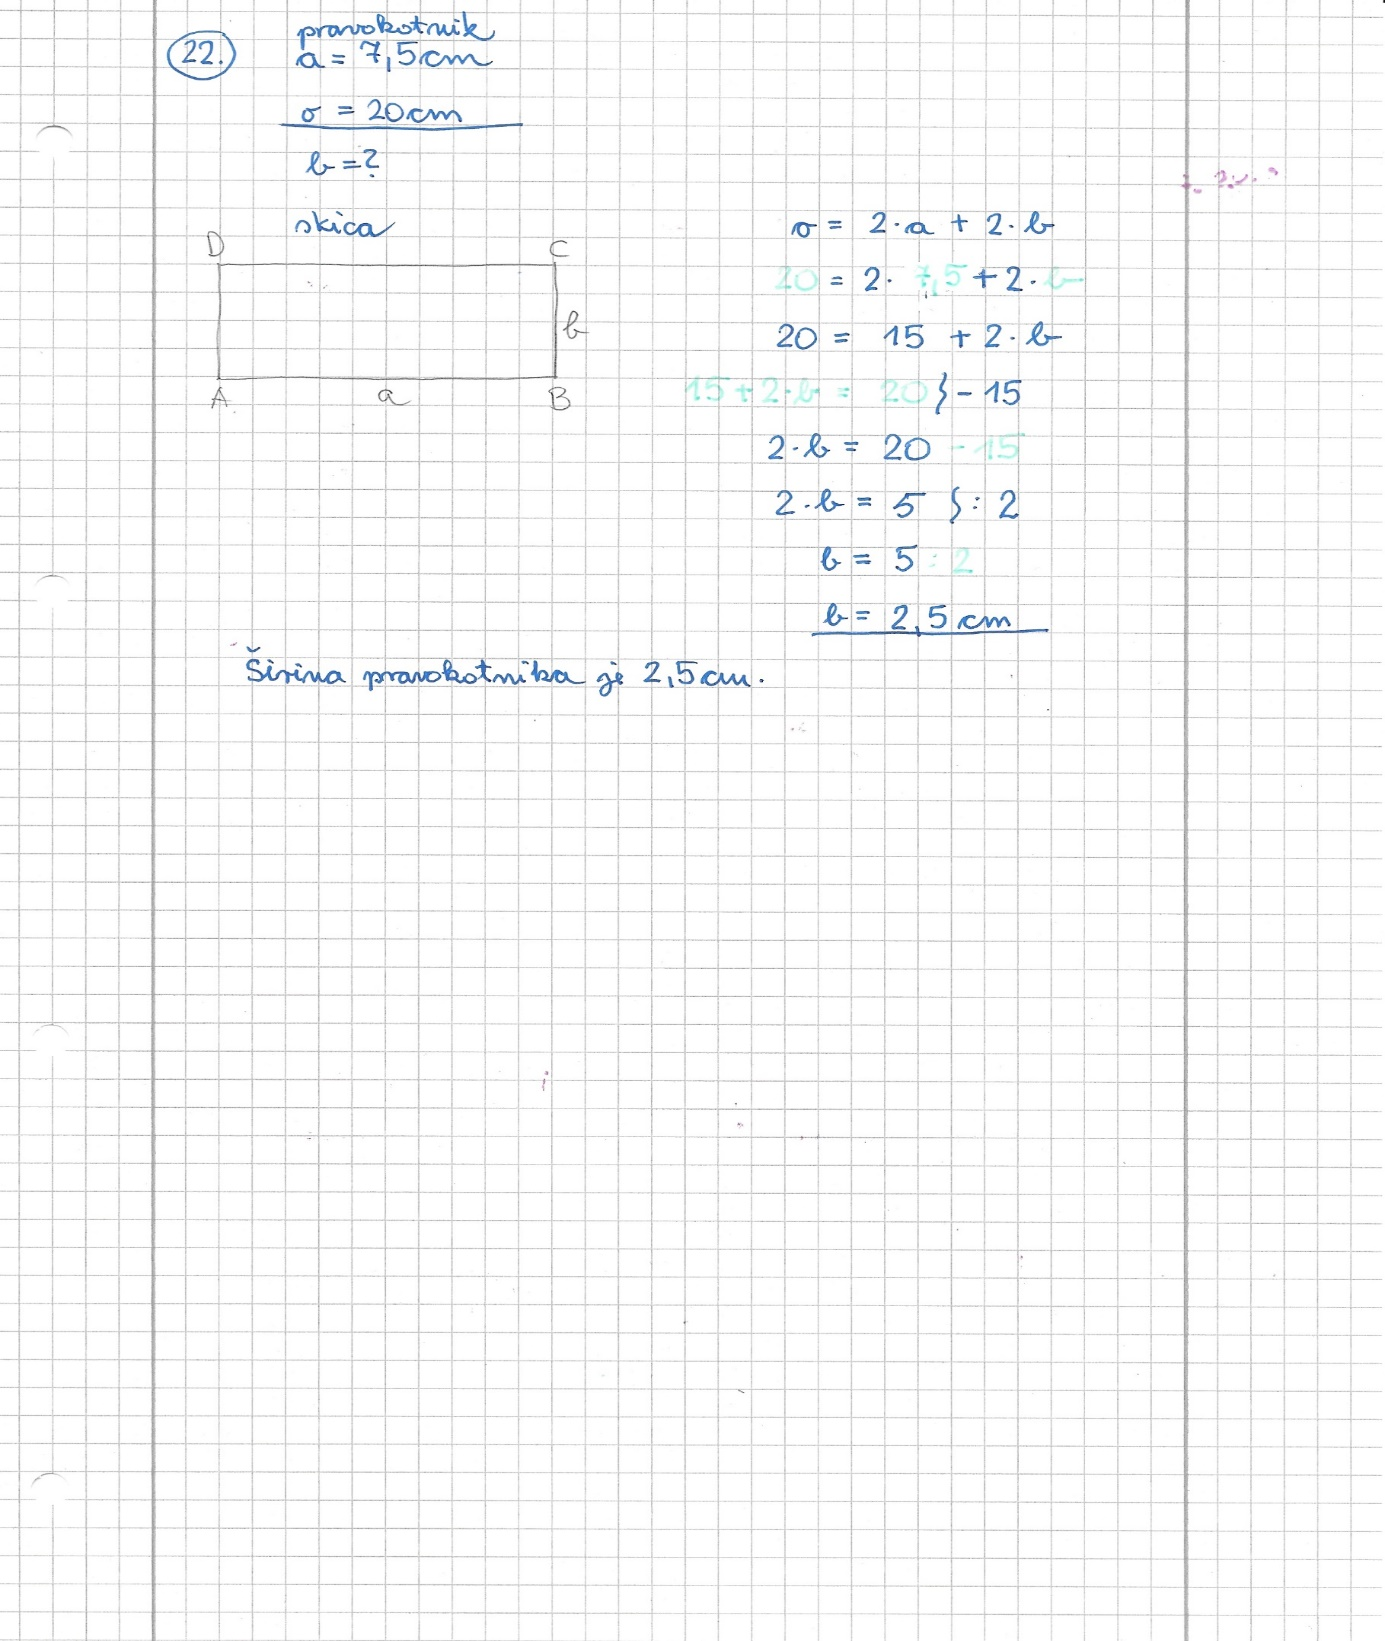 22.
pravokotnik
a = 7,5 cm
o = 20 cm
b = ?
skica
D C
b
A a B
o = 2·a + 2·b
20 = 2· 7,5 + 2·b
20 = 15 + 2·b
15 + 2·b = 20 } - 15
2·b = 20 - 15
2·b = 5 } : 2
b = 5 : 2
b = 2,5 cm
Širina pravokotnika je 2,5 cm.